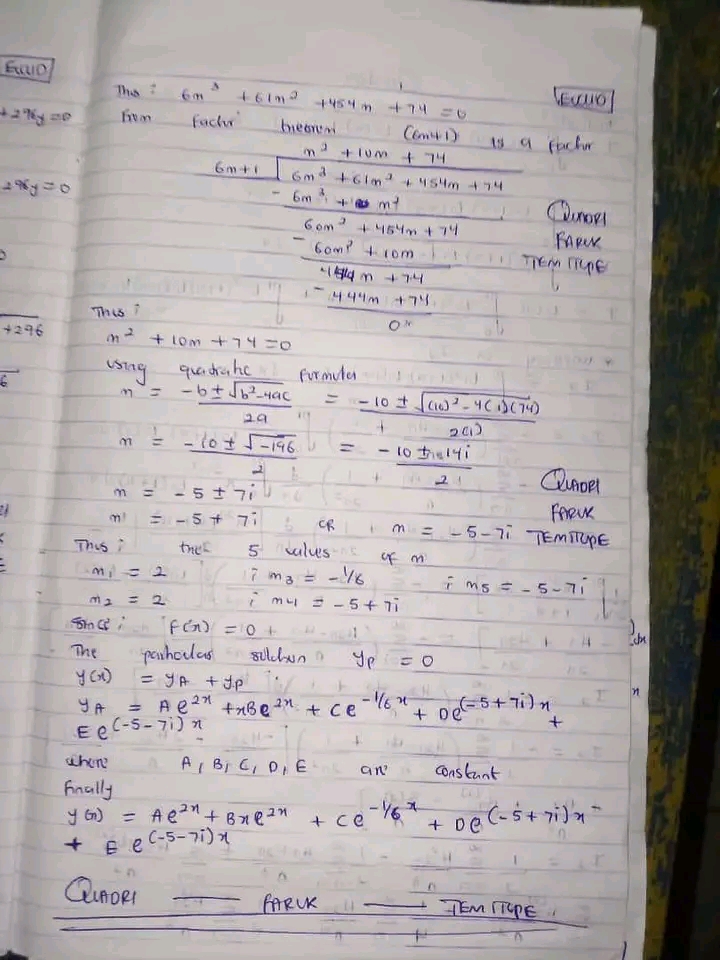 EUCLID
+296y=0
296y=0
+296
6
Thus: 6m³ + 61m² + 454m + 74 = 0
EUCLID
From Factor theorem (6m+1) is a factor
m² + 10m + 74
6m+1 | 6m³ + 61m² + 454m + 74
- 6m³ + m²
60m² + 454m + 74
- 60m² + 10m
444m + 74
- 444m + 74
0
QUADRI
FARUK
TEMITOPE
Thus:
m² + 10m + 74 = 0
using quadratic formula
m = -b ± √b²-4ac / 2a = -10 ± √(10)² - 4(1)(74) / 2(1)
m = -10 ± √-196 / 2 = -10 ± 14i / 2
m = -5 ± 7i
m = -5 + 7i or m = -5 - 7i
QUADRI
FARUK
TEMITOPE
Thus; the 5 values of m
m₁ = 2 ; m₃ = -1/6 ; m₅ = -5 - 7i
m₂ = 2 ; m₄ = -5 + 7i
Since; f(x) = 0
The particular solution yp = 0
y(x) = yA + yp
yA = Ae^2x + xBe^2x + Ce^-1/6 x + De^(-5+7i)x +
Ee^(-5-7i)x
where A, B, C, D, E are constant
Finally
y(x) = Ae^2x + Bxe^2x + Ce^-1/6 x + De^(-5+7i)x
+ Ee^(-5-7i)x
QUADRI — FARUK — TEMITOPE